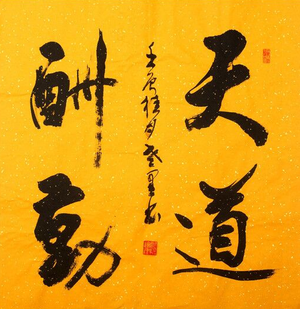 天道
酬勤
壬辰桂月